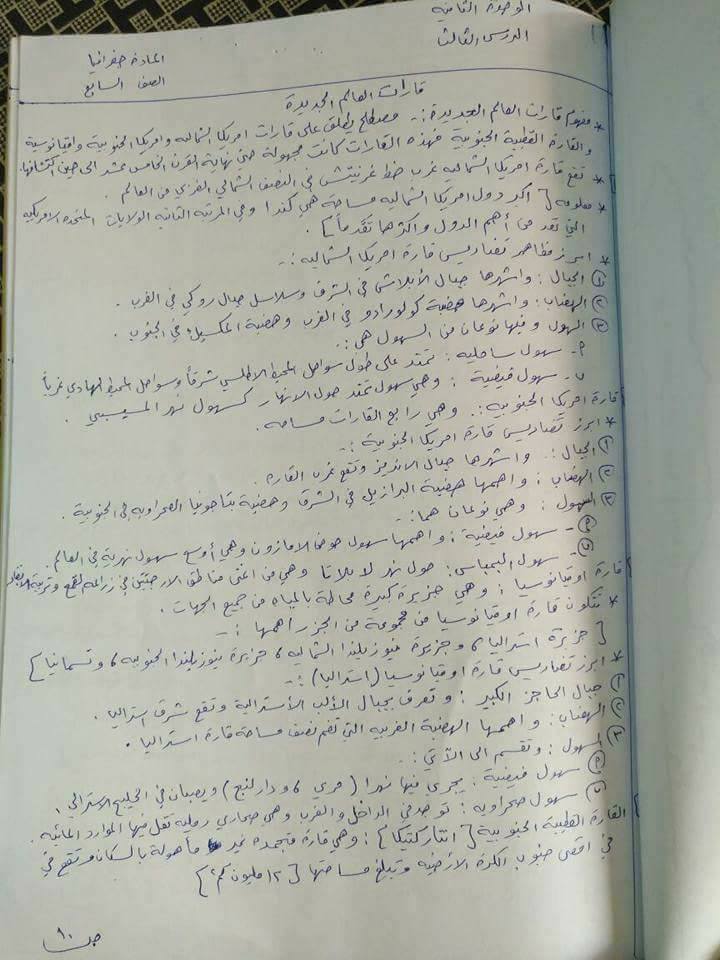 الوحدة الثانية
الدرس الثالث
المادة جغرافيا
الصف السابع
قارات العالم الجديدة
* مفهوم قارات العالم الجديدة :- مصطلح يطلق على قارات امريكا الشماليه وامريكا الجنوبية واوقيانوسية
والقارة القطبية الجنوبية فهذه القارات كانت مجهولة حتى نهاية القرن الخامس عشر الى حين اكتشافها.
* تقع قارة امريكا الشماليه غرب خط غرنيتش في النصف الشمالي الغربي من العالم .
* معلومه [ اكبر دول امريكا الشماليه مساحة هي كندا وفي المرتبه الثانيه الولايات المتحده الامريكيه
التي تعد من أهم الدول واكثرها تقدماً ] .
* ابرز مظاهر تضاريس قارة امريكا الشماليه :-
① الجبال : واشهرها جبال الأبلاش في الشرق وسلاسل جبال روكي في الغرب .
② الهضاب : واشهرها هضبة كولورادو في الغرب وهضبة المكسيك في الجنوب .
③ السهول وفيها نوعان من السهول هي :-
أ- سهول ساحليه : تمتد على طول سواحل المحيط الاطلسي شرقاً وسواحل المحيط الهادي غرباً
ب- سهول فيضية : وهي سهول تمتد حول الانهار كسهول نهر المسيسبي .
قارة امريكا الجنوبيه :- وهي رابع القارات مساحه .
* ابرز تضاريس قارة امريكا الجنوبية :-
① الجبال :- واشهرها جبال الانديز وتقع غرب القاره .
② الهضاب : واهمها هضبة البرازيل في الشرق وهضبة بتاجونيا الصحراويه في الجنوبية .
③ السهول : وهي نوعان هما :-
أ- سهول فيضية : واهمها سهول حوض الامازون وهي أوسع سهول نهرية في العالم .
ب- سهول البمباس : حول نهر لابلاتا وهي من اغنى مناطق الارجنتين في زراعة القمح وتربية الابقار
قارة اوقيانوسيا : وهي جزيرة كبيرة محاطة بالمياه من جميع الجهات .
* تتكون قارة اوقيانوسيا من مجموعة من الجزر أهمها :-
[ جزيرة استراليا ، وجزيرة نيوزيلندا الشماليه ، جزيرة نيوزيلندا الجنوبيه ، وتسمانيا ]
* ابرز تضاريس قارة اوقيانوسيا (استراليا) :-
① جبال الحاجز الكبير : وتعرف بجبال الألب الأسترالية وتقع شرق استراليا .
② الهضاب : واهمها الهضبة الغربيه التي تضم نصف مساحة قارة استراليا .
③ السهول : وتقسم الى الآتي :-
أ- سهول فيضية : يجري فيها نهرا ( مري ، ودارلنج ) ويصبان في الخليج الاسترالي .
ب- سهول صحراويه : توجد في الداخل والغرب وهي صحاري رمليه تقل فيها الموارد المائيه .
القارة القطبية الجنوبية [ انتاركتيكا ] : وهي قارة متجمدة غير مأهولة بالسكان وتقع في
في اقصى جنوب الكرة الارضيه وتبلغ مساحتها [ ١٢ مليون كم٢ ]
١٠